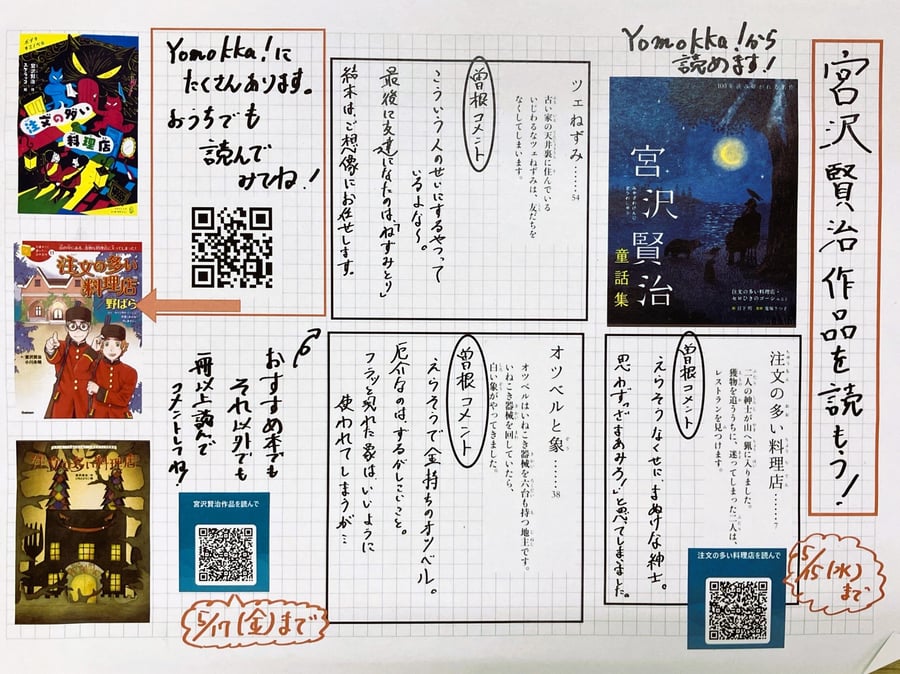 宮沢賢治作品を読もう!
Yomokka!から
読めます!
100年読み継がれる名作
宮沢賢治
みやざわけんじ
どうわしゅう
童話集
注文の多い料理店・
セロひきのゴーシュなど
注文の多い料理店……7
二人の紳士が山へ猟に入りました。
獲物を追ううちに、迷ってしまった二人は、
レストランを見つけます。
曽根コメント
えらそうなくせに、まぬけな紳士。
思わず「ざまあみろ!」と思てしまいました。
注文の多い料理店を読んで
5/15(水)
まで
ツェねずみ……54
古い家の天井裏に住んでいる
いじわるなツェねずみは、友だちを
なくしてしまいます。
曽根コメント
こういう人のせいにするやつって
いるよな〜。
最後に友達になたのは、「ねずみとり」
結末は、ご想像にお任せします。
オツベルと象……38
オツベルはいねこき器械を六台も持つ地主です。
いねこき器械を回していたら、
白い象がやってきました。
曽根コメント
えらそうで金持ちのオツベル。
厄介なのはずるがしこいこと。
フラッと現れた象は、いいように
使われてしまうが…
Yomokka!に
たくさんあります。
おうちでも
読んで
みてね!
おすすめ本でも
それ以外でも
一冊以上読んで
コメントしてね!
宮沢賢治作品を読んで
5/17(金)まで
注文の多い
料理店
注文の多い
料理店
野ばら
宮沢賢治
小川未明
Gakken
注文の多い料理店